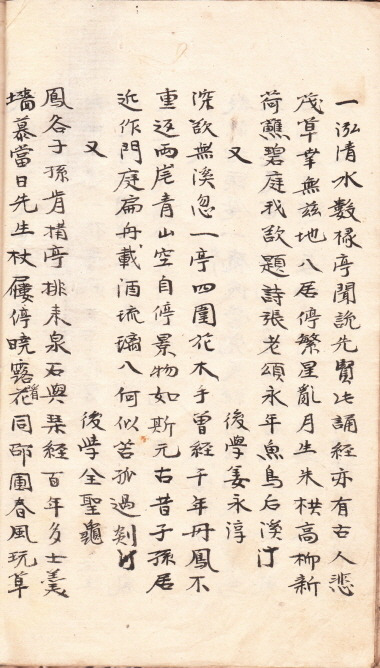 一泓清水數椽亭聞說先賢此誦經亦有古人悲
茂草寧無玆地八居停繁星亂月生朱栱高柳新
荷蘸碧庭我欲題詩張老頌永年魚鳥后溪汀
又 後學姜永淳
深欲無溪忽一亭四圍花木手曾經千年丹鳳不
重返兩崖青山空自停景物如斯元古昔子孫居
近作門庭扁舟載酒琉璃八何似苦孤過剡汀
又 後學全聖龜
鳳谷子孫肯構亭排來泉石與琹經百年多士羹
墻慕當日先生杖屨停曉露花階同邵圃春風玩草